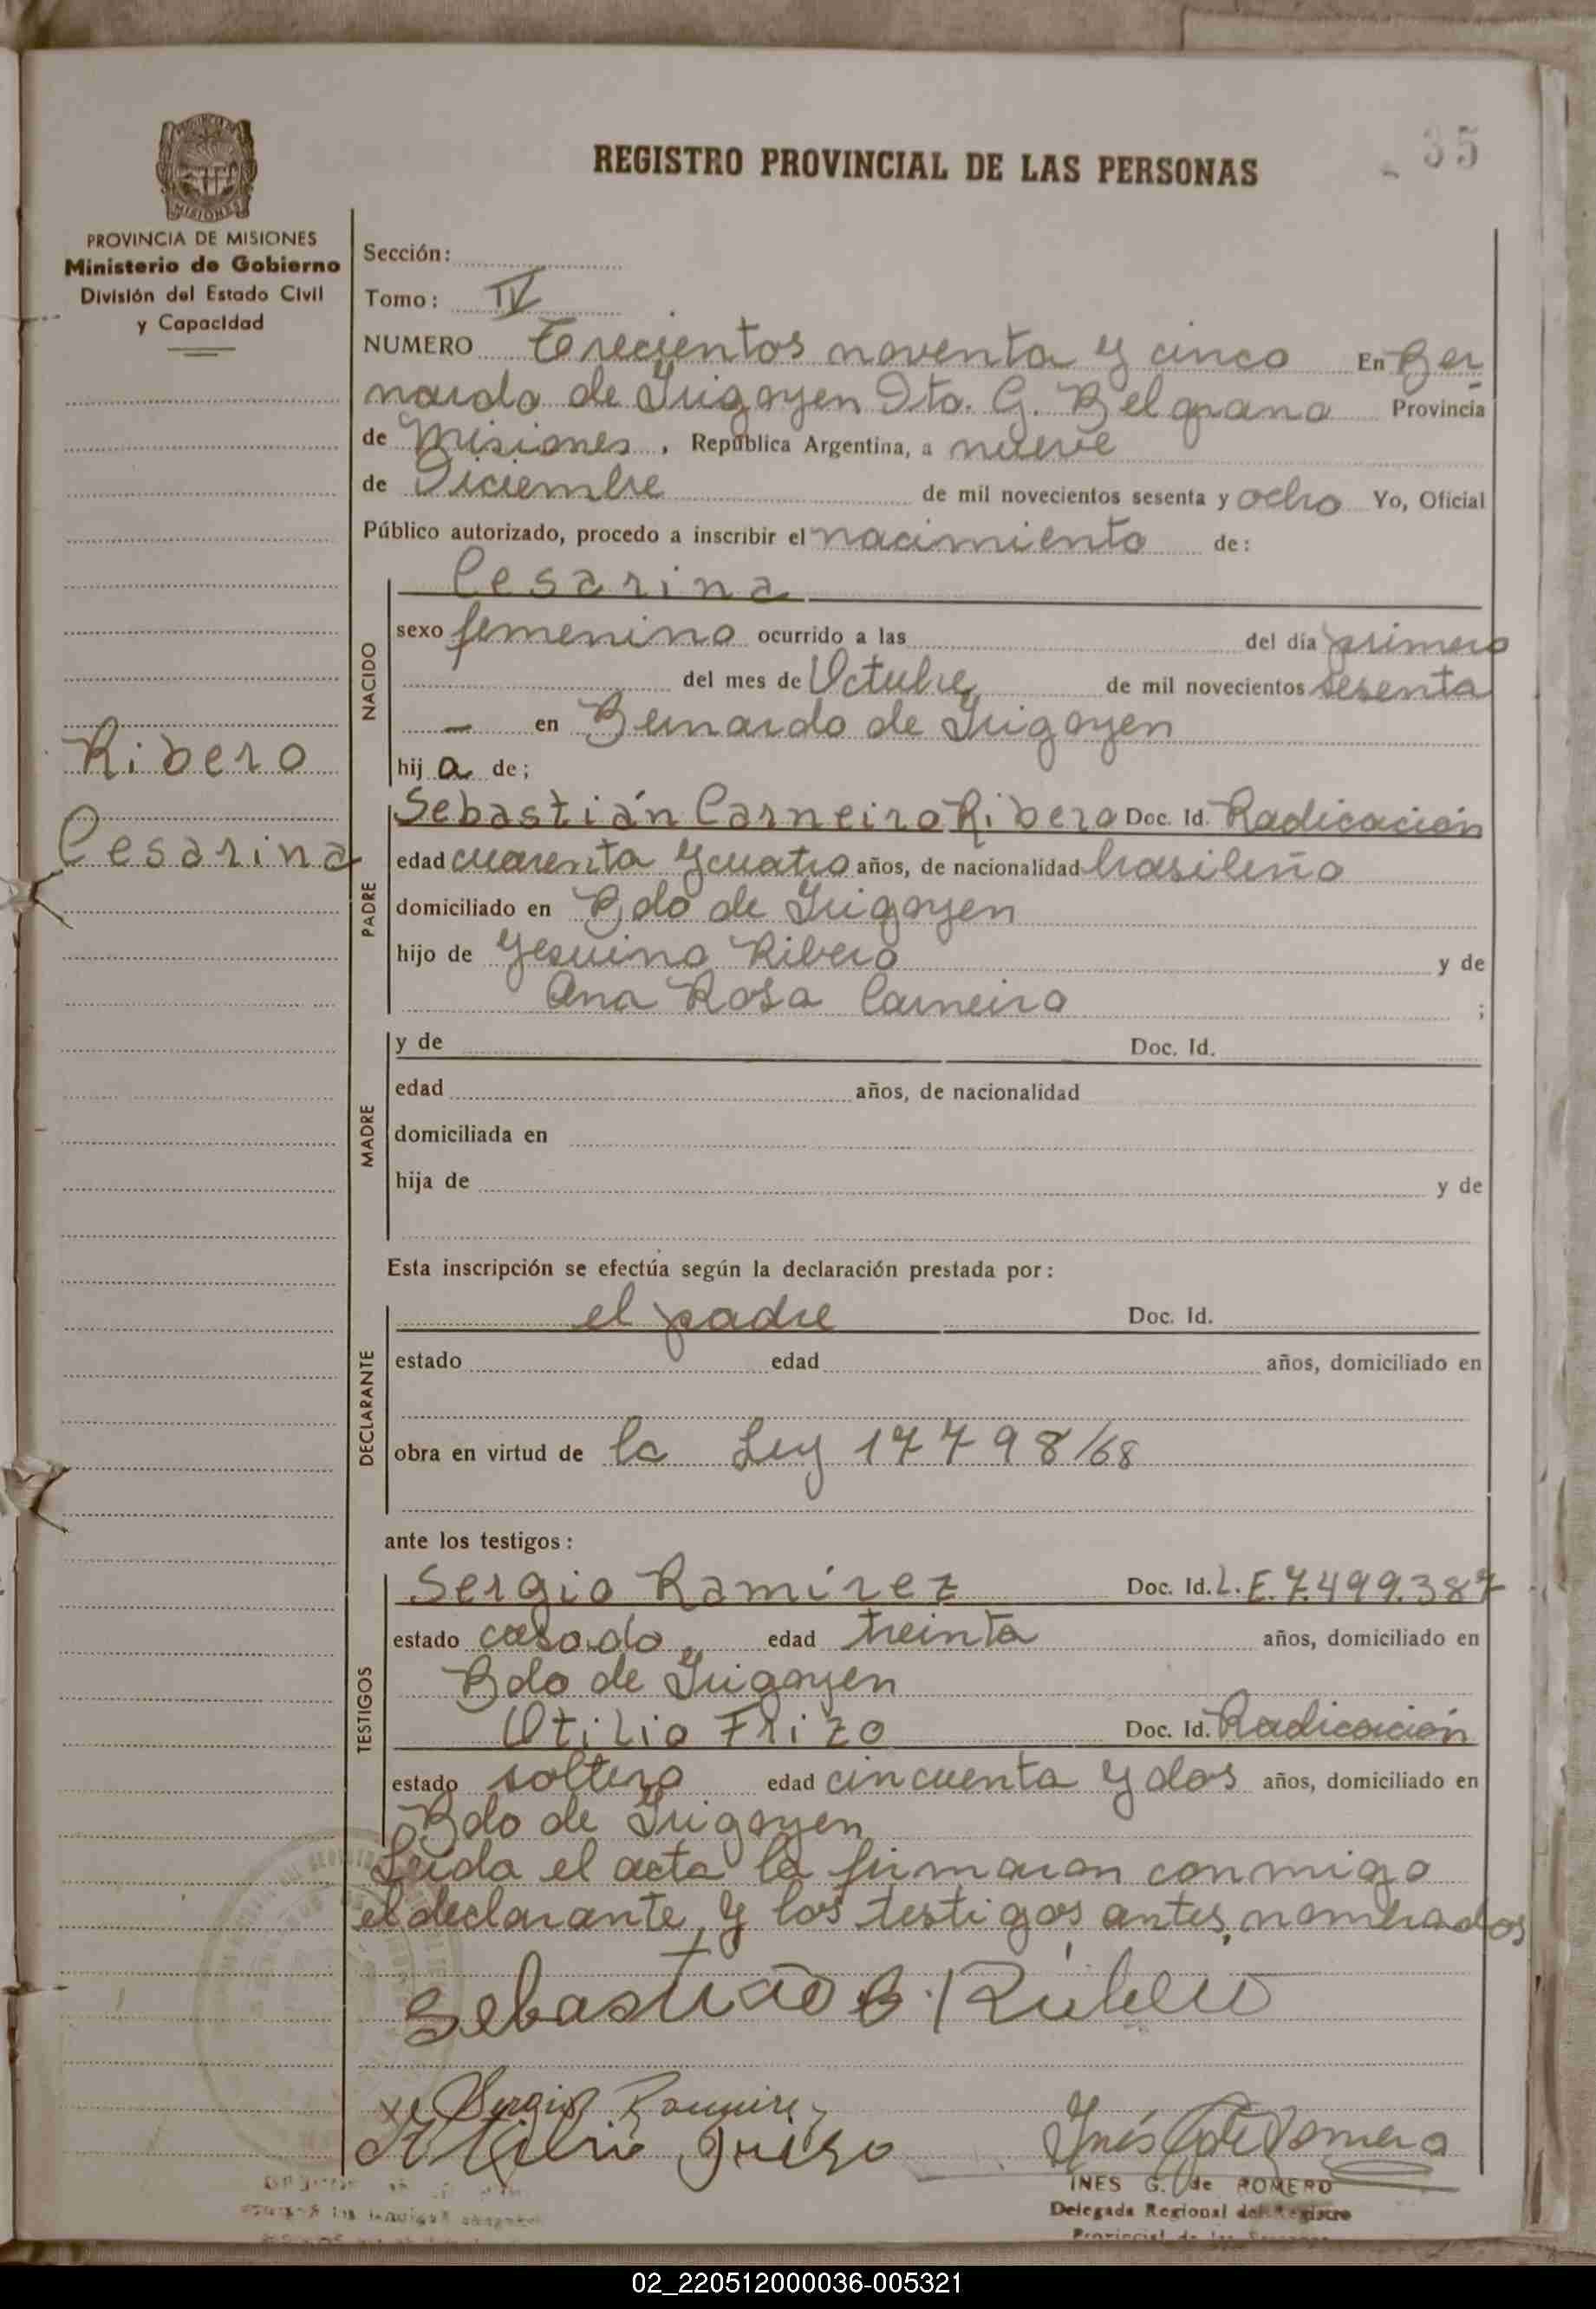 35
REGISTRO PROVINCIAL DE LAS PERSONAS
PROVINCIA DE MISIONES
Ministerio de Gobierno
División del Estado Civil
y Capacidad
Sección:
Tomo: IV
NUMERO Trecientos noventa y cinco En Ber
nardo de Irigoyen Dto. G. Belgrano Provincia
de Misiones, República Argentina, a nueve
de Diciembre de mil novecientos sesenta y ocho Yo, Oficial
Público autorizado, procedo a inscribir el nacimiento de:
Cesarina
NACIDO
sexo femenino ocurrido a las del día primero
del mes de Octubre de mil novecientos sesenta
— en Bernardo de Irigoyen
hija de;
Ribero
Cesarina
PADRE
Sebastián Carneiro Ribero Doc. Id. Radicación
edad cuarenta y cuatro años, de nacionalidad brasileño
domiciliado en Bdo de Irigoyen
hijo de Yesuino Ribero y de
Ana Rosa Carneiro ;
MADRE
y de Doc. Id.
edad años, de nacionalidad
domiciliada en
hija de y de
Esta inscripción se efectúa según la declaración prestada por:
DECLARANTE
el padre Doc. Id.
estado edad años, domiciliado en
obra en virtud de la Ley 17798/68
ante los testigos:
TESTIGOS
Sergio Ramírez Doc. Id. L.E.7.499.387
estado casado, edad treinta años, domiciliado en
Bdo de Irigoyen
Otilio Frizo Doc. Id. Radicación
estado soltero edad cincuenta y dos años, domiciliado en
Bdo de Irigoyen
Leida el acta la firmaron conmigo
el declarante, y los testigos antes, nombrados
Sebastião C. Ribeiro
Sergio Ramirez
Frizo
Inés G de Romero
INES G. de ROMERO
Delegada Regional del Registro
Provincial de las
02_220512000036-005321